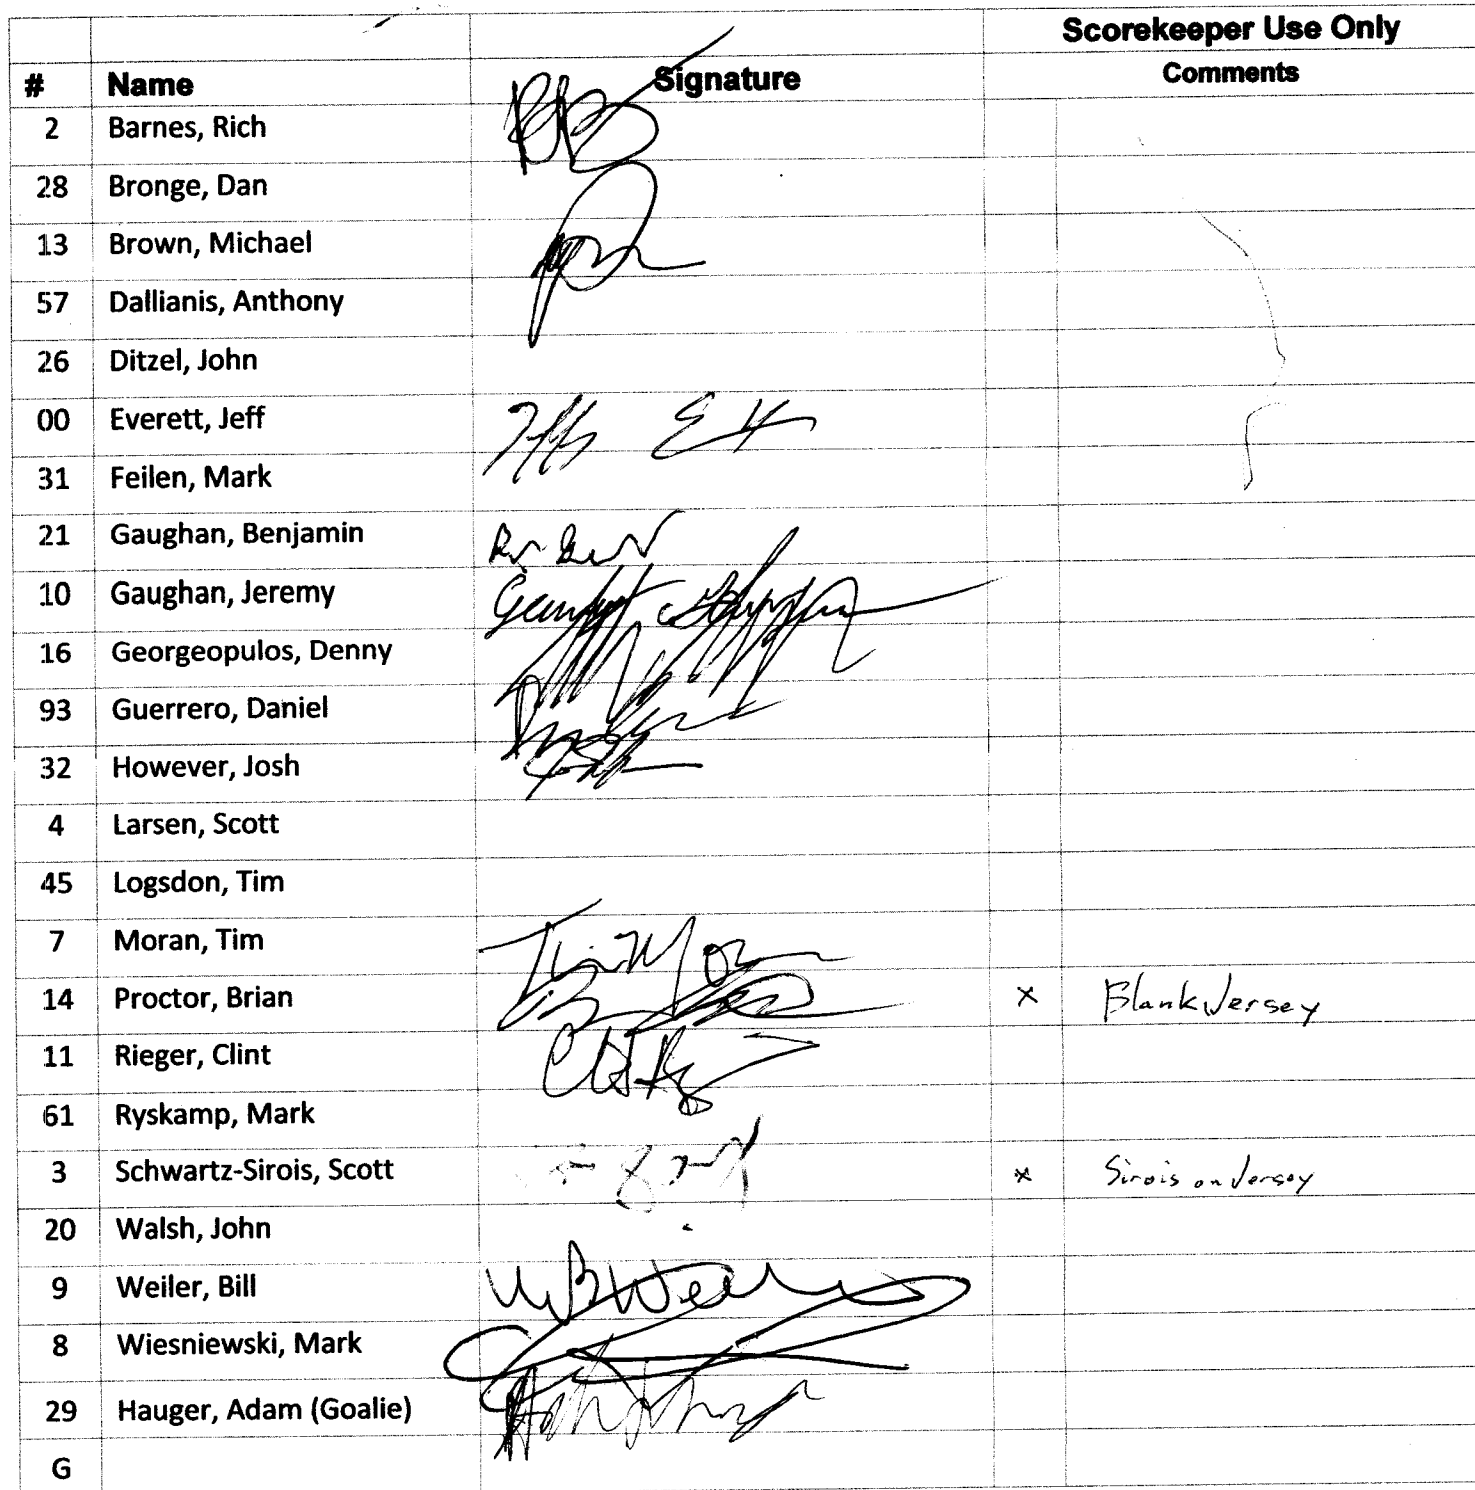 Scorekeeper Use Only
# Name Signature Comments
2 Barnes, Rich
28 Bronge, Dan
13 Brown, Michael
57 Dallianis, Anthony
26 Ditzel, John
00 Everett, Jeff
31 Feilen, Mark
21 Gaughan, Benjamin
10 Gaughan, Jeremy
16 Georgeopulos, Denny
93 Guerrero, Daniel
32 However, Josh
4 Larsen, Scott
45 Logsdon, Tim
7 Moran, Tim Tim Moran
14 Proctor, Brian x Blank Jersey
11 Rieger, Clint
61 Ryskamp, Mark
3 Schwartz-Sirois, Scott x Sirois on Jersey
20 Walsh, John
9 Weiler, Bill
8 Wiesniewski, Mark
29 Hauger, Adam (Goalie)
G